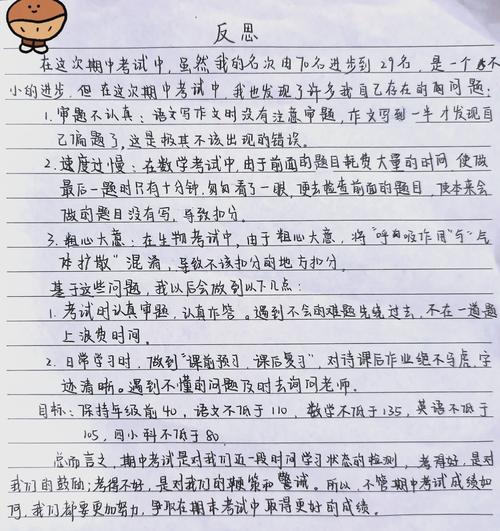 反思
在这次期中考试中，虽然我的名次由70名进步到29名，是一个不
小的进步，但在这次期中考试中，我也发现了许多我自己存在的问题：
1. 审题不认真：语文写作文时没有注意审题，作文写到一半才发现自
己偏题了，这是极其不该出现的错误。
2. 速度过慢：在数学考试中，由于前面的题目耗费大量的时间，使做
最后一题时只有十分钟，匆匆看了一眼，便去检查前面的题目，使本来会
做的题目没有写，导致扣分。
3. 粗心大意：在生物考试中，由于粗心大意，将“呼吸作用”与“气
体扩散”混淆，导致不该扣分的地方扣分。
基于这些问题，我以后会做到以下几点：
1. 考试时认真审题，认真作答。遇到不会的难题先绕过去，不在一道题
上浪费时间。
2. 日常学习时，做到“课前预习，课后复习”，对待课后作业绝不马虎，字
迹清晰。遇到不懂的问题及时去询问老师。
目标：保持年级前40，语文不低于110，数学不低于135，英语不低于
105，四小科不低于80
总而言之，期中考试是对我们这一段时间学习状态的检测，考得好，是对
我们的鼓励；考得不好，是对我们的鞭策和警诫。所以，不管期中考试成绩如
何，我们都要更加努力，争取在期末考试中取得更好的成绩。